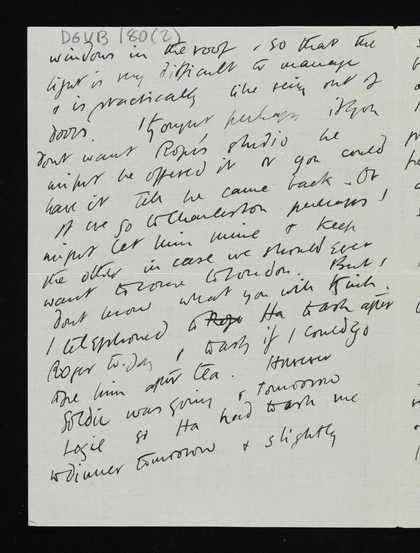 DGVB 180(2)
windows in the roof, so that the
light is very difficult to manage
& is practically like being out of
doors. I thought perhaps if you
dont want Roger's studio he
might be offered it or you could
have it till he came back. Or
if we go to Charleston perhaps I
might let him mine & keep
the other in case we should ever
want to come to London. But I
dont know what you will think.
I telephoned to Ha to ask after
Roger to-day & to ask if I could go
to see him after tea. However
Goldie was going & tomorrow
Logie so Ha had to ask me
to dinner tomorrow & slightly